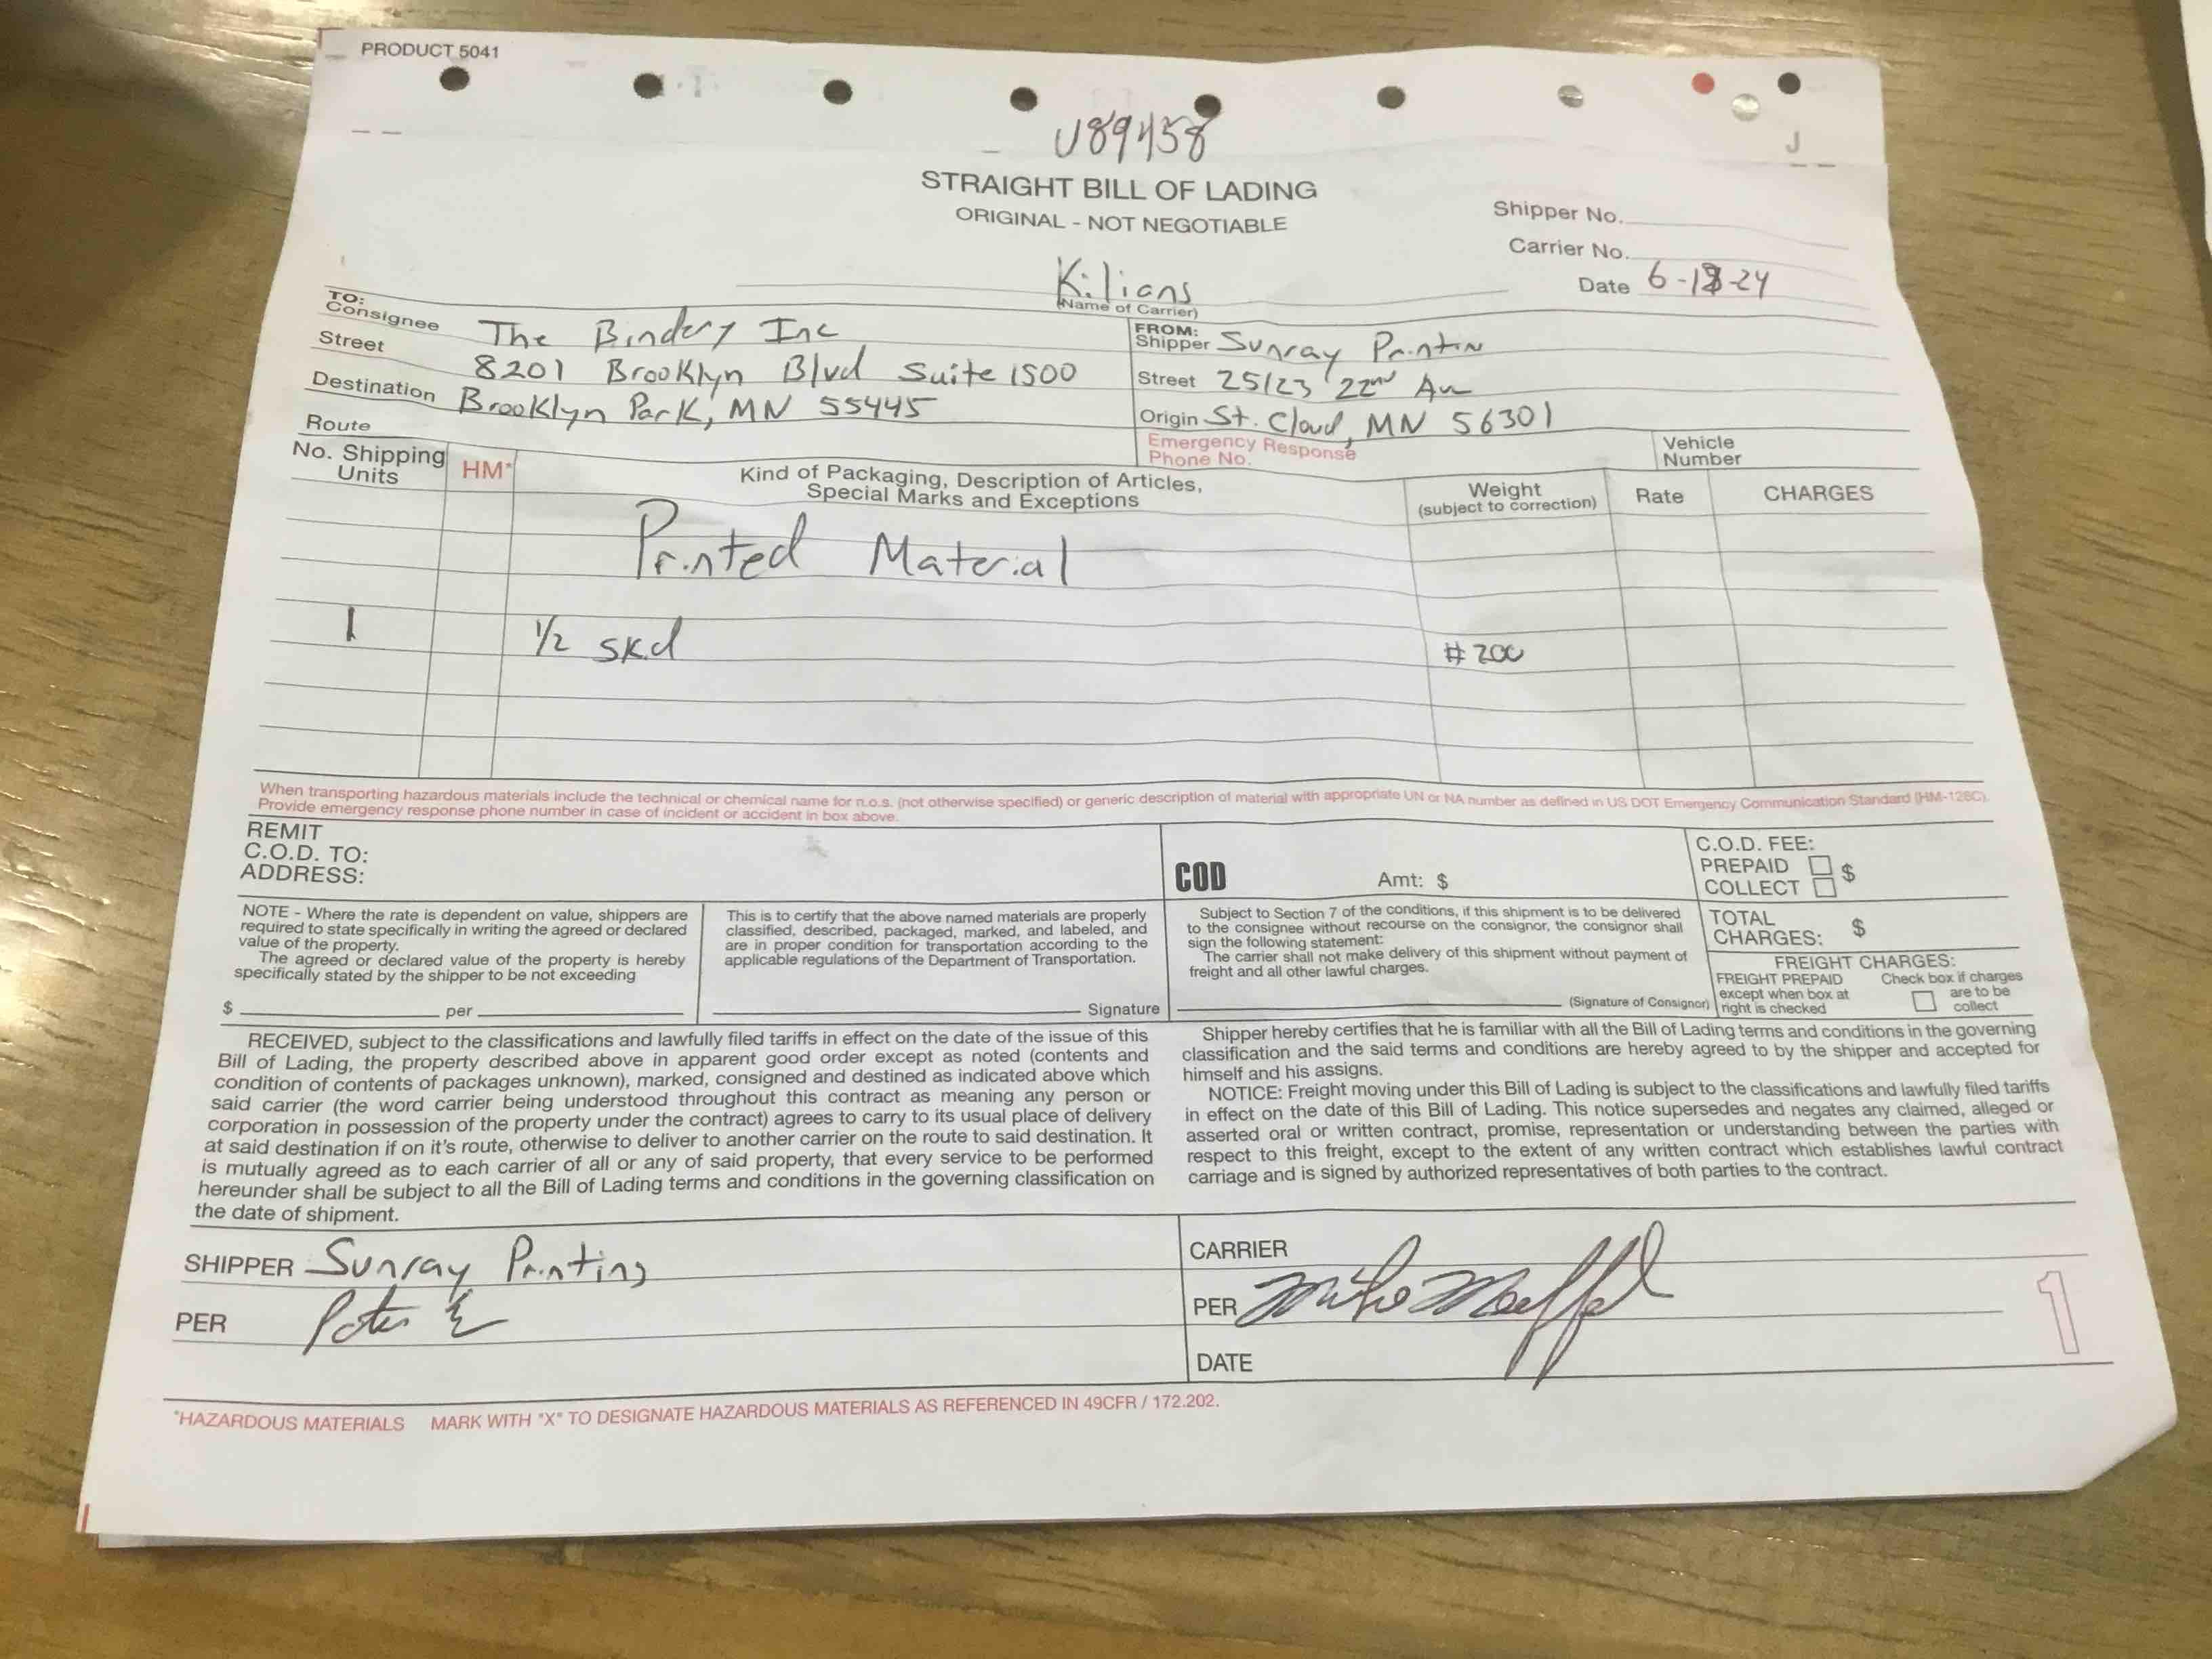 PRODUCT 5041
U89458
STRAIGHT BILL OF LADING
ORIGINAL - NOT NEGOTIABLE
Shipper No.
Carrier No.
Date
Kilians
(Name of Carrier)
TO:
Consignee The Bindery Inc
Street 8201 Brooklyn Blvd Suite 1500
Destination Brooklyn Park, MN 55445
Route
FROM:
Shipper Sunray Printin
Street 25/23 22nd
Origin St. Cloud, MN 56301
Emergency Response
Phone No.
Vehicle
Number
No. Shipping
Units
HM*
Kind of Packaging, Description of Articles,
Special Marks and Exceptions
Weight
(subject to correction)
Rate
CHARGES
Printed Material
1 1/2 skd #200
When transporting hazardous materials include the technical or chemical name for n.o.s. (not otherwise specified) or generic description of material with appropriate UN or NA number as defined in US DOT Emergency Communication Standard (HM-126C).
Provide emergency response phone number in case of incident or accident in box above.
REMIT
C.O.D. TO:
ADDRESS:
COD
Amt: $
C.O.D. FEE:
PREPAID $
COLLECT
NOTE - Where the rate is dependent on value, shippers are
required to state specifically in writing the agreed or declared
value of the property.
The agreed or declared value of the property is hereby
specifically stated by the shipper to be not exceeding
$ per
This is to certify that the above named materials are properly
classified, described, packaged, marked, and labeled, and
are in proper condition for transportation according to the
applicable regulations of the Department of Transportation.
Signature
Subject to Section 7 of the conditions, if this shipment is to be delivered
to the consignee without recourse on the consignor, the consignor shall
sign the following statement:
The carrier shall not make delivery of this shipment without payment of
freight and all other lawful charges.
(Signature of Consignor)
TOTAL
CHARGES: $
FREIGHT CHARGES:
FREIGHT PREPAID
except when box at
right is checked
Check box if charges
are to be
collect
RECEIVED, subject to the classifications and lawfully filed tariffs in effect on the date of the issue of this
Bill of Lading, the property described above in apparent good order except as noted (contents and
condition of contents of packages unknown), marked, consigned and destined as indicated above which
said carrier (the word carrier being understood throughout this contract as meaning any person or
corporation in possession of the property under the contract) agrees to carry to its usual place of delivery
at said destination if on it's route, otherwise to deliver to another carrier on the route to said destination. It
is mutually agreed as to each carrier of all or any of said property, that every service to be performed
hereunder shall be subject to all the Bill of Lading terms and conditions in the governing classification on
the date of shipment.
Shipper hereby certifies that he is familiar with all the Bill of Lading terms and conditions in the governing
classification and the said terms and conditions are hereby agreed to by the shipper and accepted for
himself and his assigns.
NOTICE: Freight moving under this Bill of Lading is subject to the classifications and lawfully filed tariffs
in effect on the date of this Bill of Lading. This notice supersedes and negates any claimed, alleged or
asserted oral or written contract, promise, representation or understanding between the parties with
respect to this freight, except to the extent of any written contract which establishes lawful contract
carriage and is signed by authorized representatives of both parties to the contract.
SHIPPER Sunray Printing
PER
CARRIER
PER
DATE
1
*HAZARDOUS MATERIALS MARK WITH "X" TO DESIGNATE HAZARDOUS MATERIALS AS REFERENCED IN 49CFR / 172.202.